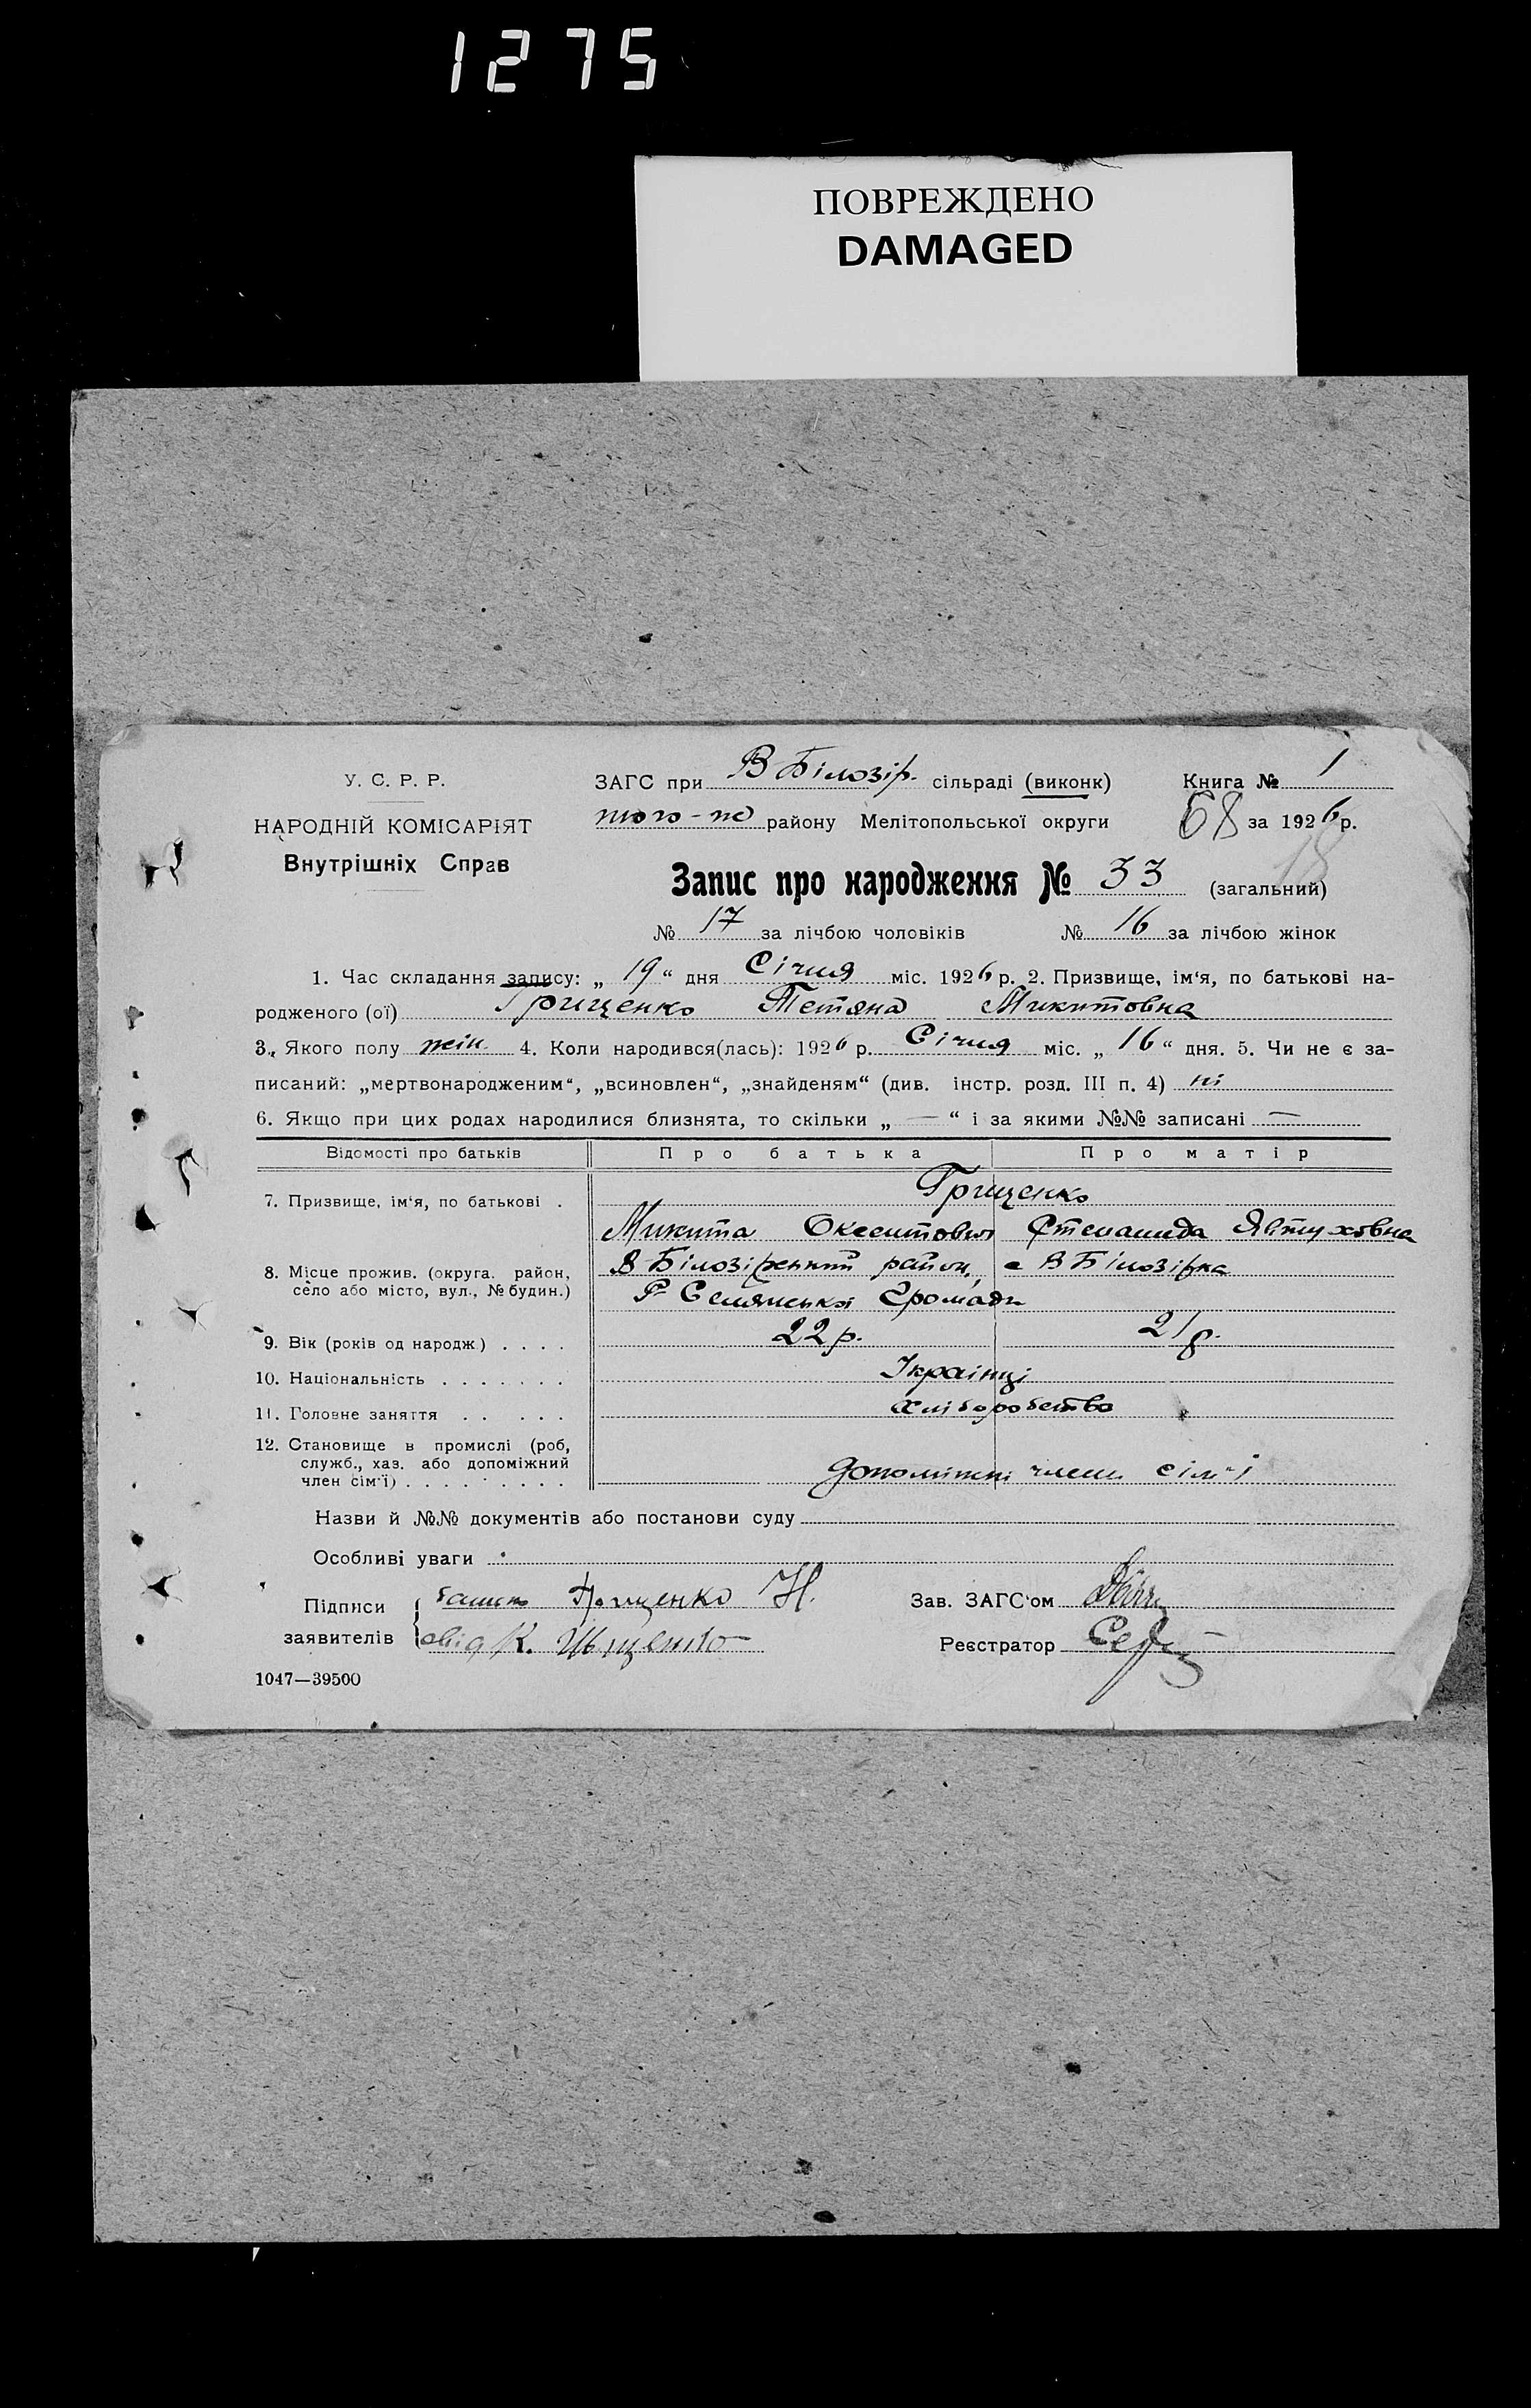 1275
ПОВРЕЖДЕНО
DAMAGED
У. С. Р. Р.
НАРОДНІЙ КОМІСАРІЯТ
Внутрішніх Справ
ЗАГС при В Білозір. сільраді (виконк) Книга № 1
того-ж району Мелітопольської округи 68 за 1926 р.
18
Запис про народження № 33 (загальний)
№ 17 за лічбою чоловіків № 16 за лічбою жінок
1. Час складання запису: „ 19 “ дня Січня міс. 1926 р. 2. Призвище, ім‘я, по батькові на-
родженого (ої) Грищенко Тетяна Микитовна
3. Якого полу жін. 4. Коли народився(лась): 1926 р. Січня міс. „ 16 “ дня. 5. Чи не є за-
писаний: „мертвонародженим“, „всиновлен“, „знайденям“ (див. інстр. розд. III п. 4) ні
6. Якщо при цих родах народилися близнята, то скільки „ — “ і за якими №№ записані —
Відомості про батьків Про батька Про матір
7. Призвище, ім‘я, по батькові . Грищенко
Микита Степанида Явтуховна
8. Місце прожив. (округа. район, село або місто, вул., № будин.) В Білозірський район, с В Білозірка
Селянської Громади
9. Вік (років од народж.) . . . . 22 р. 21 р.
10. Національність . . . . . . . Українці
11. Головне заняття . . . . . хліборобство
12. Становище в промислі (роб, служб., хаз. або допоміжний член сім‘ї) . . . . . . . . допоміжні члени сім'ї
Назви й №№ документів або постанови суду
Особливі уваги
Підписи заявителів { батько Грищенко Н.
свід К.
Зав. ЗАГС‘ом
Реєстратор
1047—39500